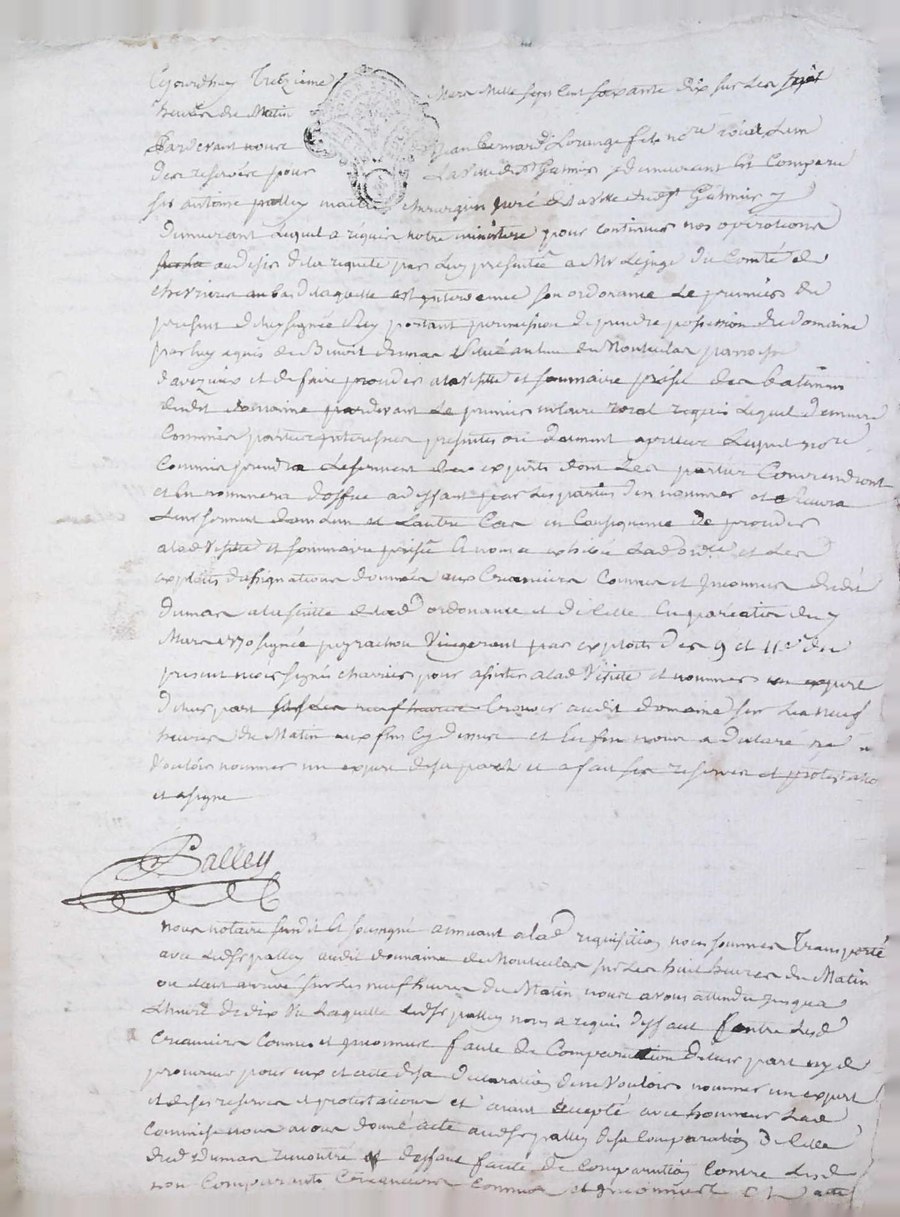 Cejourdhuy Treizieme Mars Mille sept Cent soixante dix sur Les sept
heures du Matin
Pardevant nous Jean Bernard Lorange feb nore roial en
des reservés pour La Ville de St Galmier y demeurant Est Comparu
sr antoine palley maitre chirurgien juré de la Ville de St Galmier y
demeurant Lequel a requis notre ministere pour continuer nos operations
au desir de la requete par Luy presentée a Mr Le juge du Comté de
chevrieres au bas de laquelle est intervenue son ordonance Le premier du
present portant permission de prendre possession du domaine
par luy aquis de Benoit dumas situé au lieu de Montuclas parroisse
d'aveizieux et de faire proceder a la Visitte et sommaire prisée des batimens
dudit domaine pardevant Le premier notaire roial requis Lequel demeure
Commis parties interessées presentes ou duement apellées Lequel nore
Commis prendra Le serment des experts dont Les parties Conviendront
et En nommera d'office a deffaut par Les parties d'en nommer et recevra
Leur serment dans L'un et L'autre Cas En Consequence de proceder
a lad Visitte et sommaire prisée Et nous a exhibé Lad ordce et Les
exploits d'assignations données aux Creanciers Connus et Inconnus dudit
dumas a la suitte de lad ordonance et d'icelle En pareatis du 7
Mars 1770 signée peyrachon Vicegerent par exploits des 9 et 11e du
present mois signés charrier pour assister a lad Visitte et nommer un expert
de leur part se trouver audit domaine sur Les neuf
heures du Matin aux fins Cy dessus et Enfin nous a declaré ne
Vouloir nommer un expert de sa part et a fait ses reserves et protestations
et a signé
Palley
Nous notaire susdit Et soussigné adherant a lad requisition nous sommes Transporté
avec Led sr palley audit domaine de Montuclas sur Les huit heures du Matin
ou étant arrivé sur Les neuf heures du Matin nous avons attendu jusqua
L'heure de dix sur Laquelle Led sr palley nous a requis deffaut Contre Lesd
Creanciers Connus et Inconnus faute de Comparution de leur part ny de
procureur pour eux et acte de sa declaration de ne Vouloir nommer un expert
et de ses reserves et protestations et ayant accepté avec honneur Lad
Commission nous avons donné acte aud sr palley de sa Comparution de celle
dud dumas rencontré et deffaut faute de Comparution Contre Lesd
non Comparants Creanciers Connus et Inconnus